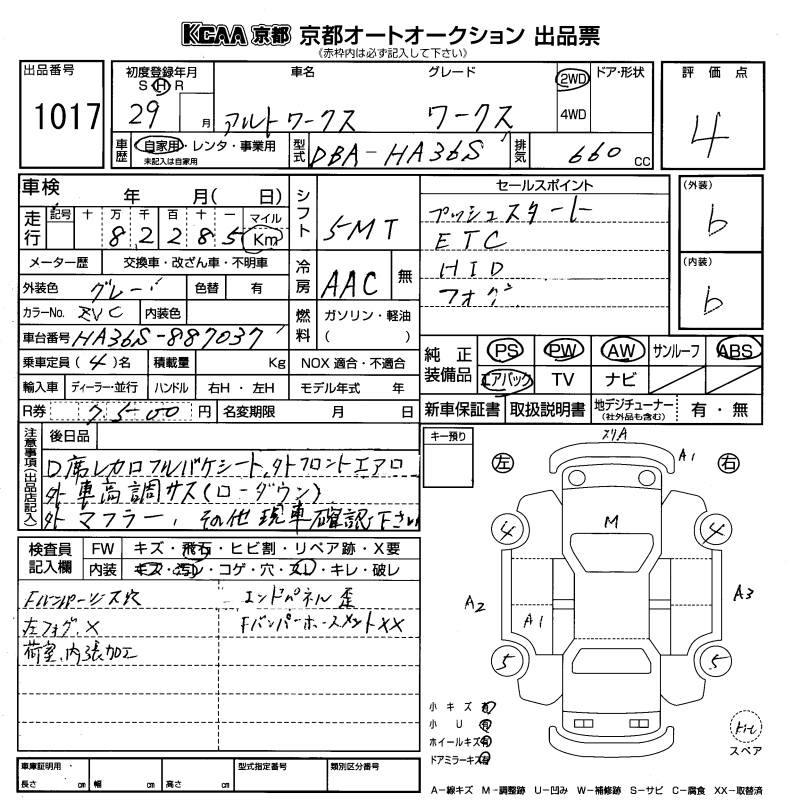 KCAA 京都 京都オートオークション 出品票
(赤枠内は必ず記入して下さい)
出品番号
1017
初度登録年月
S H R
29 月
車名
アルト ワークス
グレード
ワークス
2WD
4WD
ドア・形状
評価点
4
車歴
自家用・レンタ・事業用
未記入は自家用
型式
DBA-HA36S
排気
660 CC
車検 年 月( 日)
走行
記号 十 万 千 百 十 一 マイル
8 2 2 8 5 Km
シフト
5MT
セールスポイント
プッシュスタート
ETC
HID
フォグ
(外装)
b
(内装)
b
メーター歴 交換車・改ざん車・不明車
外装色 グレー 色替 有
カラーNo. ZVC 内装色
冷房 AAC 無
燃料 ガソリン・軽油
( )
車台番号 HA36S-887037
乗車定員 (4)名 積載量 Kg NOX 適合・不適合
輸入車 ディーラー・並行 ハンドル 右H・左H モデル年式 年
R券 7,500 円 名変期限 月 日
純正装備品
PS PW AW サンルーフ ABS
エアバック TV ナビ
新車保証書 取扱説明書 地デジチューナー(社外品も含む) 有・無
注意事項(出品店記入)
後日品
D席レカロフルバケシート、外フロントエアロ
外 車高調サス(ローダウン)
外 マフラー、その他現車確認下さい
キー預り
検査員記入欄
FW キズ・飛石・ヒビ割・リペア跡・X要
内装 キズ・汚レ・コゲ・穴・スレ・キレ・破レ
Fバンパーリンス穴
エンドパネル歪
左フォグ、X
FバンパーホースメントXX
荷室、内張加工
スリA
A1
左 右
4 4
M
A2 A1 A3
5 5
小キズ 有
小U 有
ホイールキズ 有
ドアミラーキズ 有
キット
スペア
車庫証明用
長さ cm 幅 cm 高さ cm
型式指定番号
類別区分番号
A-線キズ M-調整跡 U-凹み W-補修跡 S-サビ C-腐食 XX-取替済